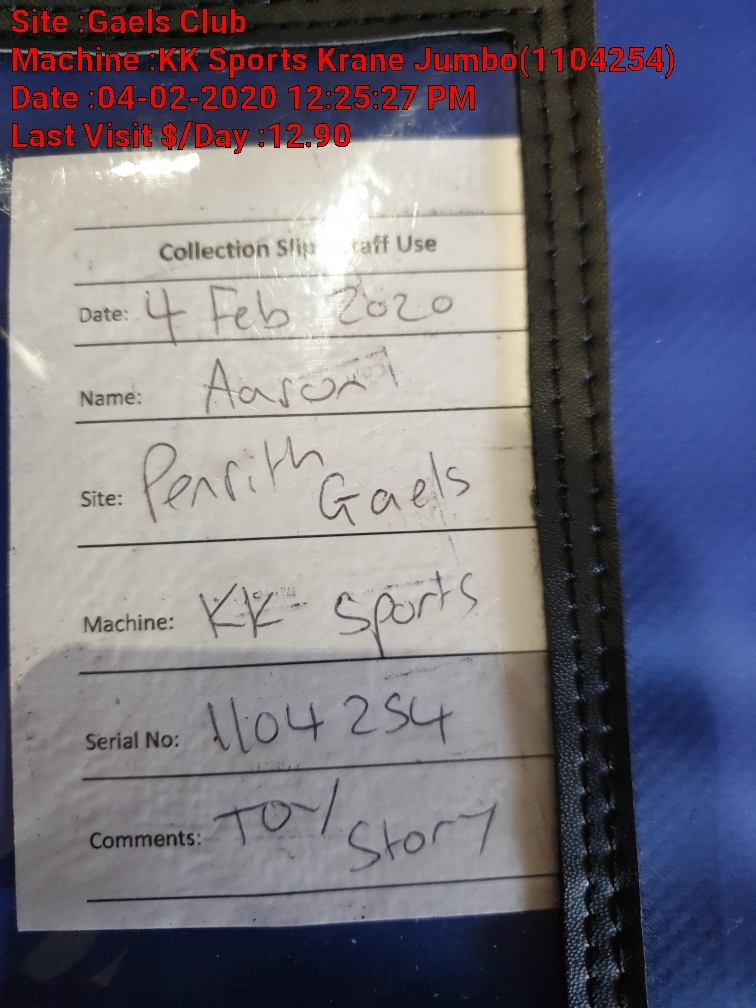 Site :Gaels Club
Machine :KK Sports Krane Jumbo(1104254)
Date :04-02-2020 12:25:27 PM
Last Visit $/Day :12.90
Collection Slip Staff Use
Date: 4 Feb 2020
Name: Aaron
Site: Penrith Gaels
Machine: KK Sports
Serial No: 1104254
Comments: TOY Story